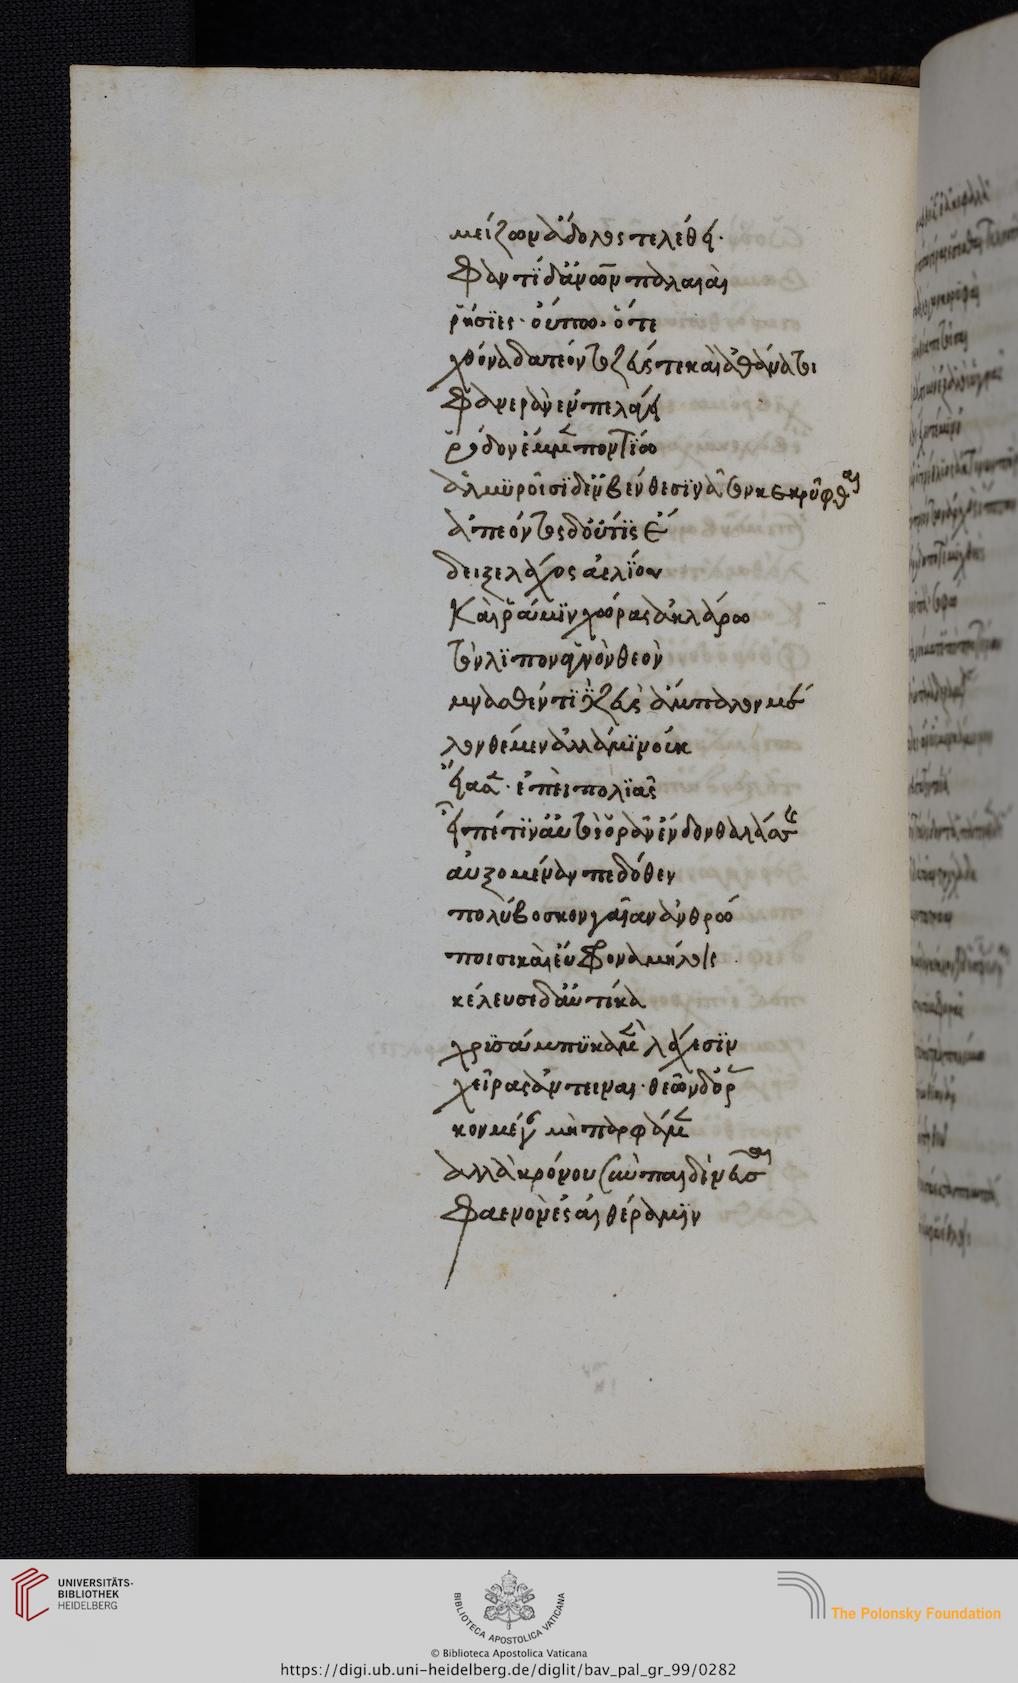 μείζων ἄδολος τελέθει.
Φαντὶ δ' ἀνθρώπων παλαιαὶ
ῥήσιες. οὔπω. ὅτε
χθόνα δατέοντο ζεύς τε καὶ ἀθάνατοι
Φανερὰν ἐν πελάγει
ῥόδον ἔμμεν ποντίω
ἁλμυροῖσι δ' ἐν βένθεσιν νᾶσον κεκρύφθαι
ἀπεόντος δ' οὔτις ἔν
δειξε λάχος ἀελίου
Καί ῥά μιν χώρας ἀκλάρω
τον λίπον ἁγνὸν θεὸν
μνασθέντι δὲ ζεὺς ἄμπαλον μέλ
λεν θέμεν ἀλλά μιν οὐκ
εἴασεν. ἐπεὶ πολιᾶς
εἶπέ τιν' αὐτὸς ὁρᾶν ἔνδον θαλάσσας
αὐξομέναν πεδόθεν
πολύβοσκον γαῖαν ἀνθρώ
ποισι καὶ εὔφρονα μήλοις
κέλευσεν δ' αὐτίκα
χρυσάμπυκα μὲν λάχεσιν
χεῖρας ἀντεῖναι. θεῶν δ' ὅρ
κον μέγαν μὴ παρφάμεν
ἀλλὰ κρόνου σὺν παιδὶ νεῦσαι
Φαεννὸν ἐς αἰθέρα μιν
UNIVERSITÄTS-
BIBLIOTHEK
HEIDELBERG
BIBLIOTECA APOSTOLICA VATICANA
The Polonsky Foundation
© Biblioteca Apostolica Vaticana
https://digi.ub.uni-heidelberg.de/diglit/bav_pal_gr_99/0282